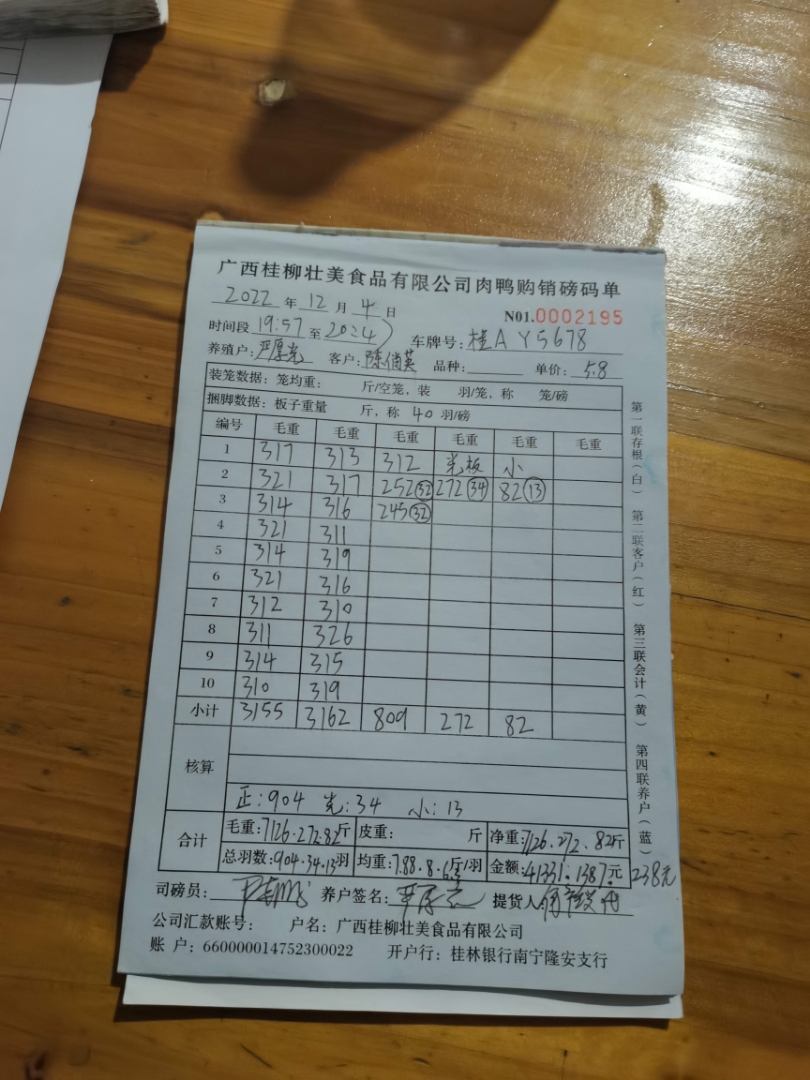 广西桂柳壮美食品有限公司肉鸭购销磅码单
2022 年 12 月 4 日
N01.0002195
时间段 19:57 至 20:24 车牌号: 桂A Y5678
养殖户: 严厚光 客户: 陈俏英 品种: 单价: 5.8
装笼数据: 笼均重: 斤/空笼, 装 羽/笼, 称 笼/磅
捆脚数据: 板子重量 斤, 称 40 羽/磅
编号 毛重 毛重 毛重 毛重 毛重 毛重
1 317 313 312 光板 小
2 321 317 252 32 272 34 82 13
3 314 316 245 32
4 321 311
5 314 319
6 321 316
7 312 310
8 311 326
9 314 315
10 310 319
小计 3155 3162 809 272 82
核算
正:904 光:34 小:13
合计 毛重:7126.272.82斤 皮重: 斤 净重:7126.272.82斤
总羽数:904.34.13羽 均重:7.88.8.6.3斤/羽 金额:41331.1387.元 238元
司磅员: 养户签名: 严厚光 提货人
公司汇款账号: 户名: 广西桂柳壮美食品有限公司
账 户: 660000014752300022 开户行: 桂林银行南宁隆安支行
第一联存根(白) 第二联客户(红) 第三联会计(黄) 第四联养户(蓝)